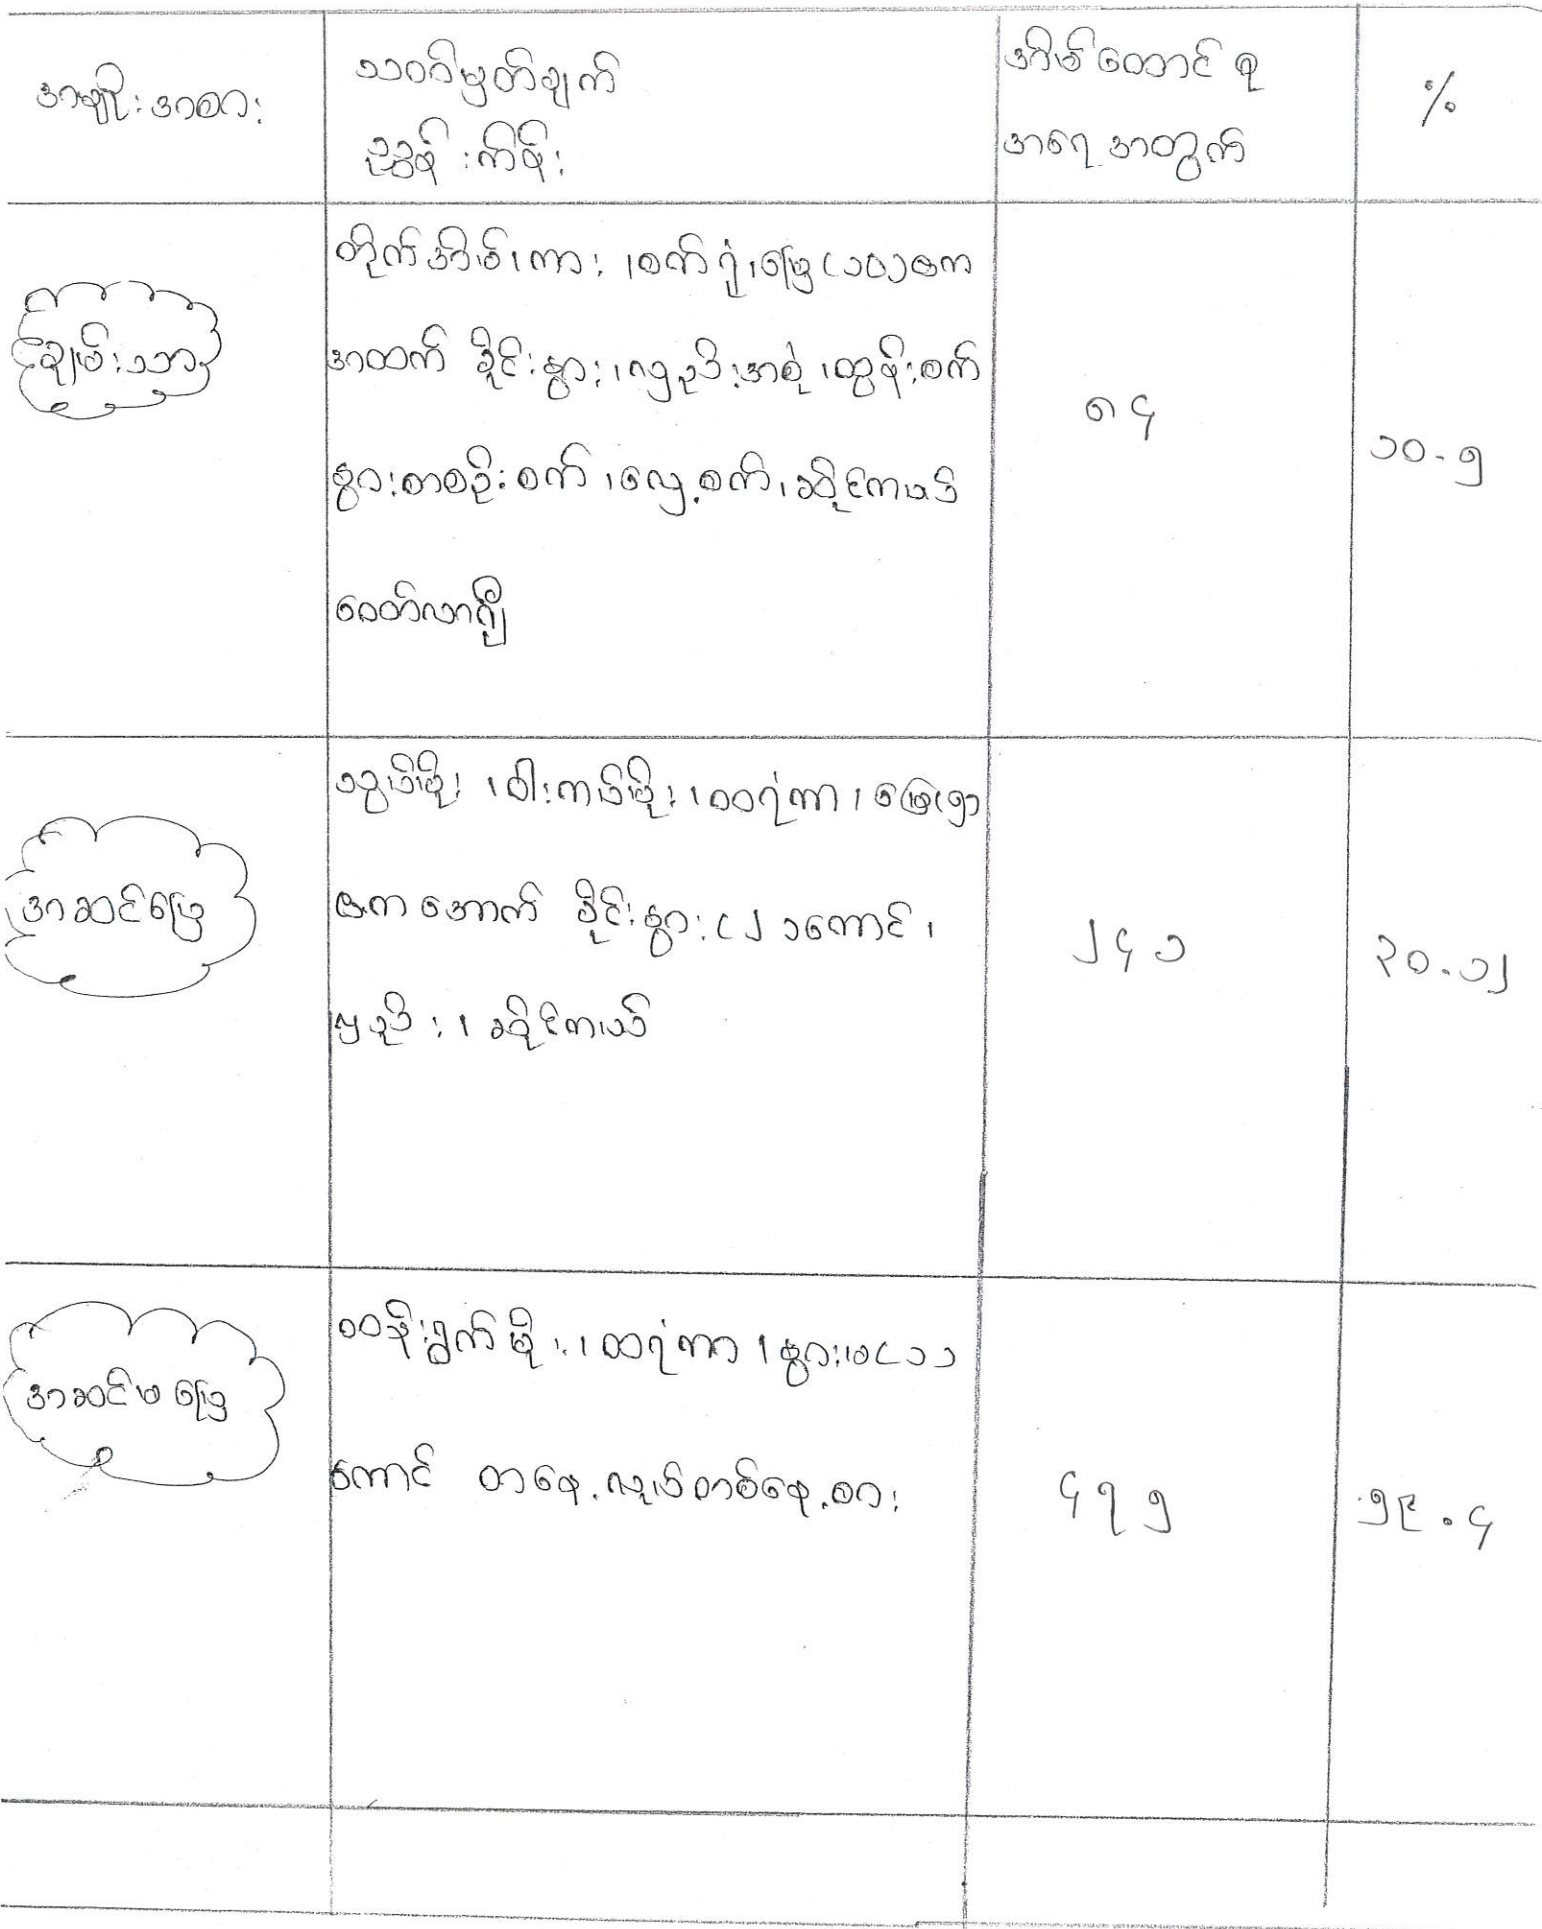 အမျိုးအစား
သတ်မှတ်ချက်
ညွှန်းကိန်း
အိမ်ထောင်စု
အရေအတွက်
%
ချမ်းသာ
တိုက်အိမ်၊ကား၊စက်ရုံ၊မြေ(၁၀)ဧက
အထက် ခိုင်းနွား၊လှည်းအစုံ၊ထွန်စက်
နွားစာစဉ်းစက်၊လှေ့စက်၊ဆိုင်ကယ်
ဝေတ်လာရှိ
၈၄
၁၀.၅
အဆင်ပြေ
သွပ်မိုး၊ဝါးကပ်မိုး၊ထရံကာ၊မြေ(၅)
ဧကအောက် ခိုင်းနွား(၂)ကောင်၊
လှည်း၊ဆိုင်ကယ်
၂၄၁
၃၀.၁၂
အဆင်မပြေ
ထန်းရွက်မိုး၊ထရံကာ၊နွားမ(၁)
ကောင် တနေ့လုပ်တစ်နေ့စား
၄၇၅
၅၉.၄